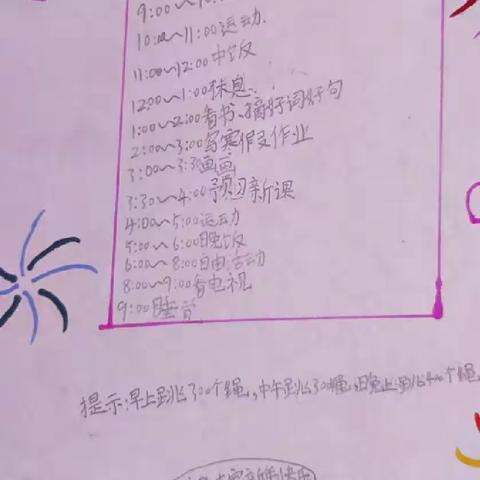 9:00~10
10:00~11:00运动.
11:00~12:00中饭
12:00~1:00休息.
1:00~2:00看书、摘好词好句
2:00~3:00写寒假作业
3:00~3:30画画
3:30~4:00预习新课
4:00~5:00运动
5:00~6:00晚饭
6:00~8:00自由活动
8:00~9:00看电视
9:00睡觉
提示:早上跳300个绳,中午跳300绳,晚上跳400个绳